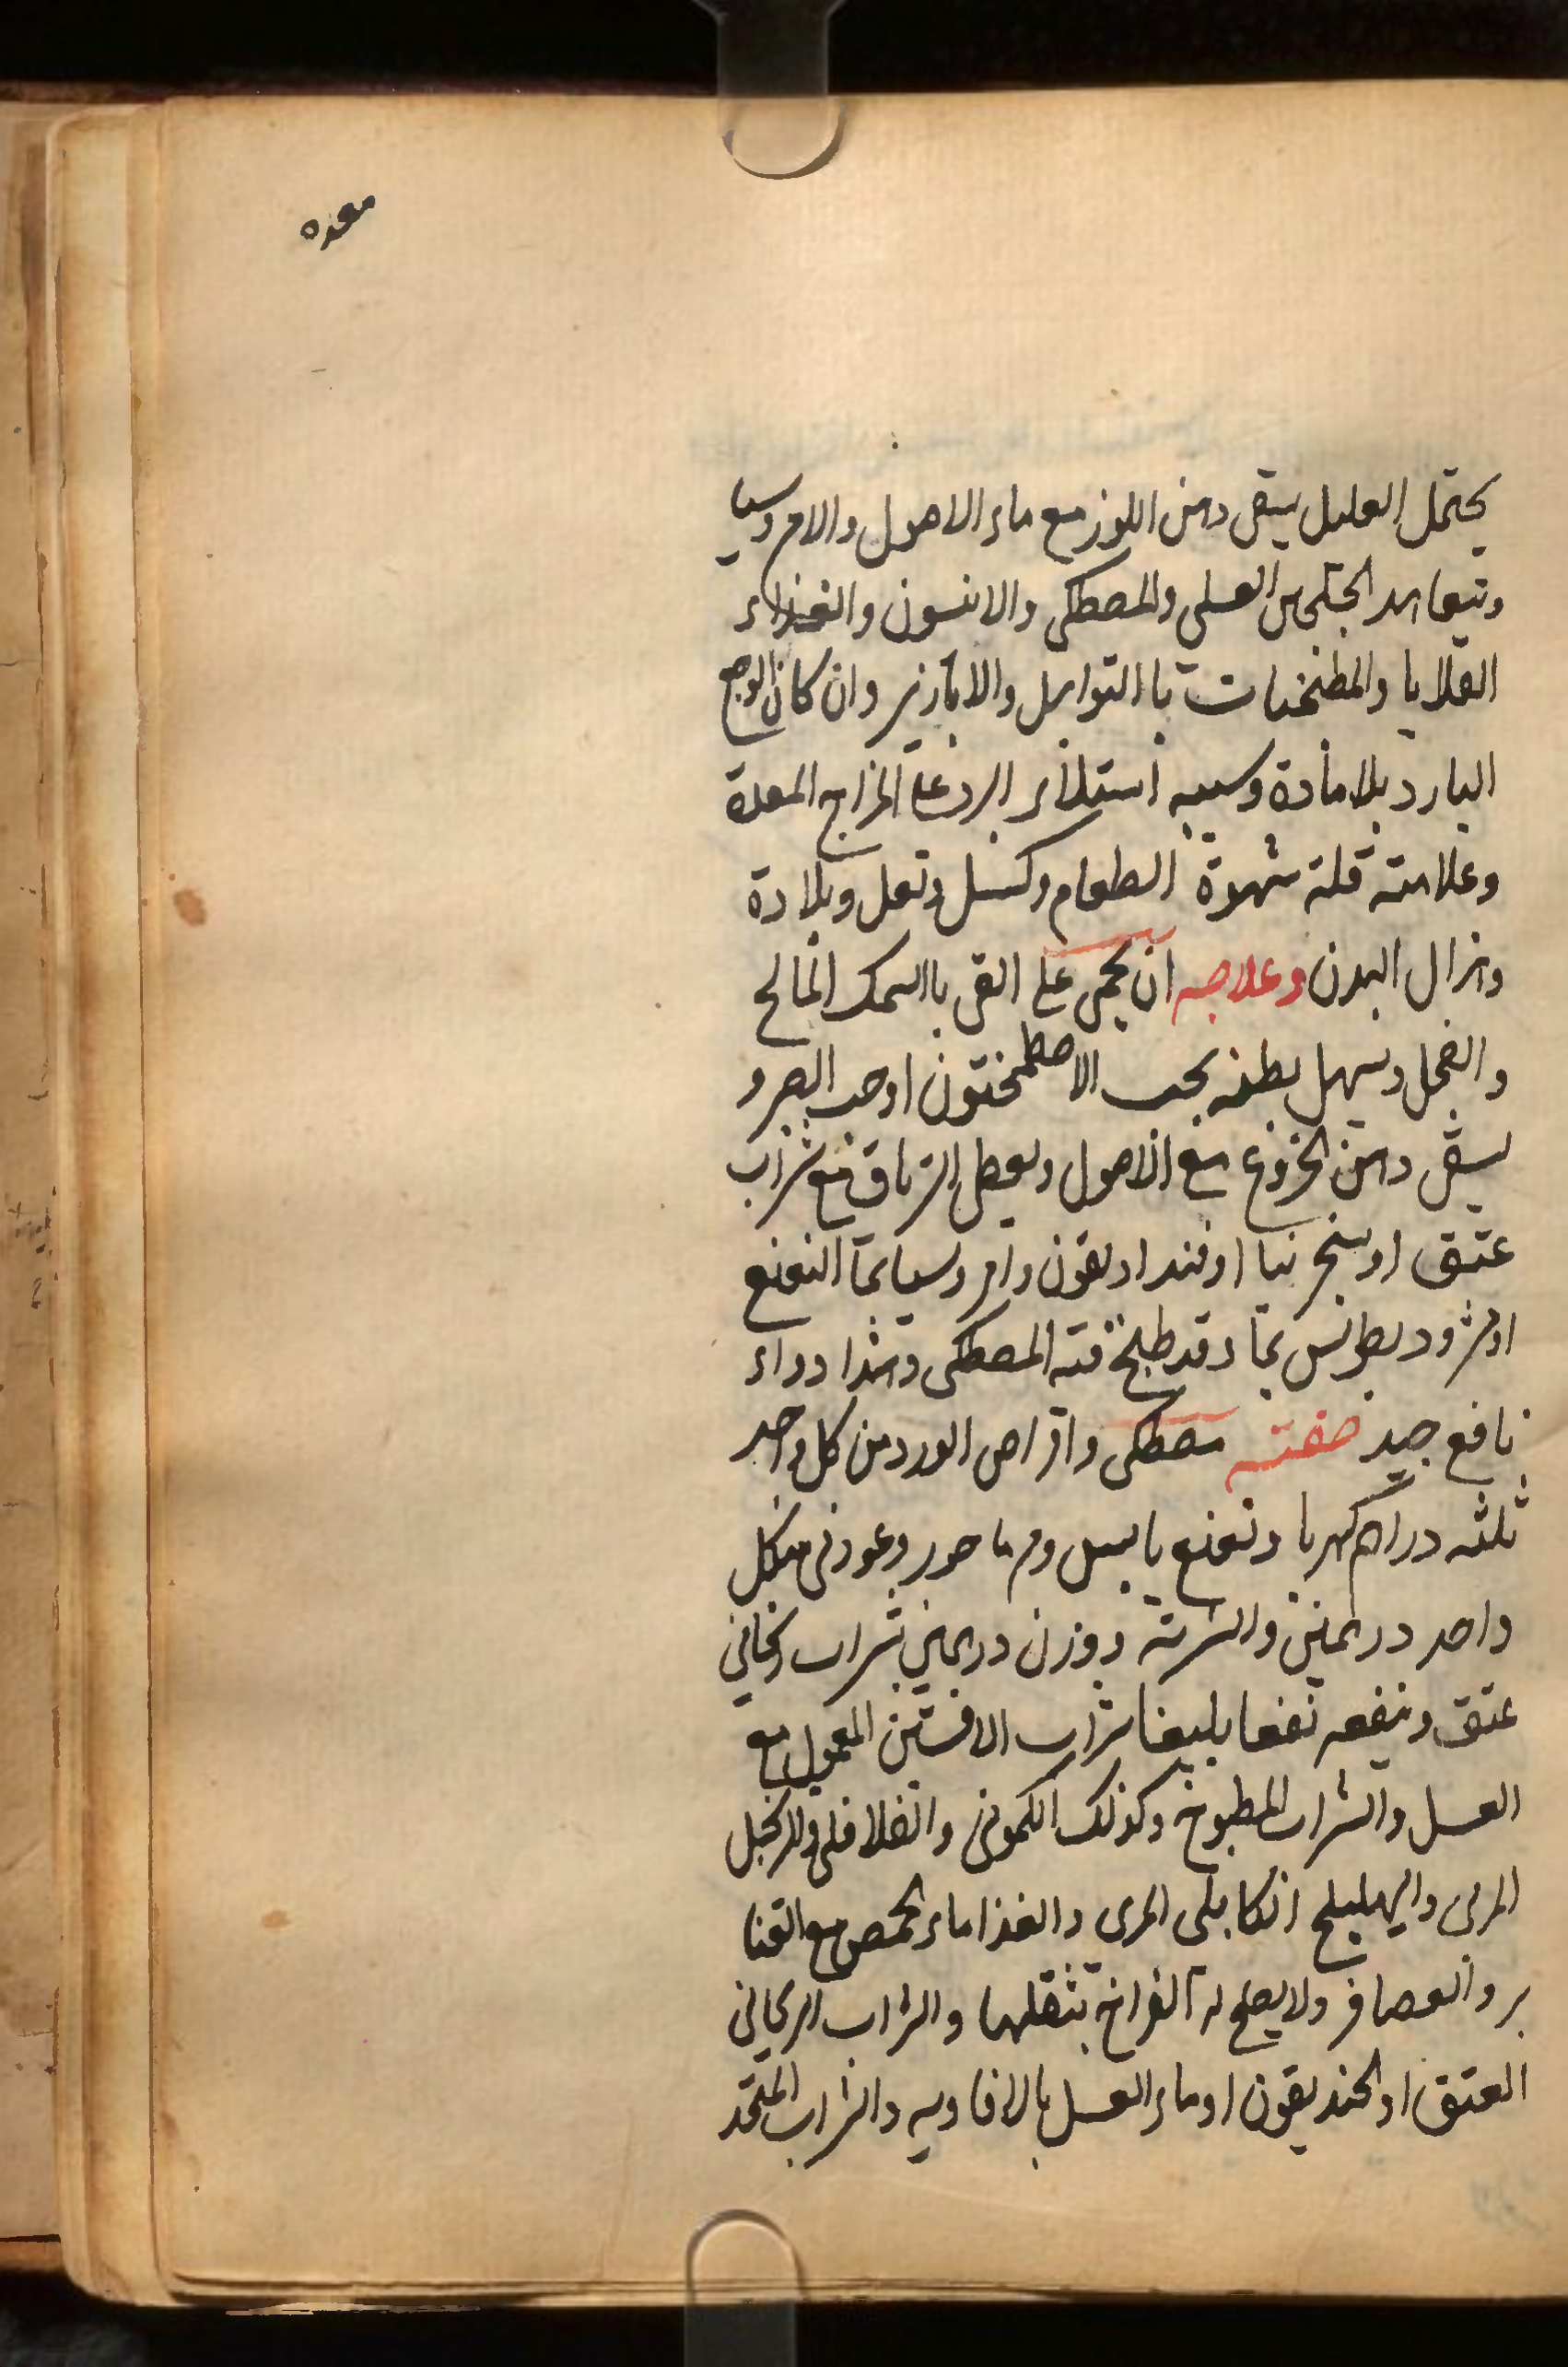 معده
يحتمل العليل يسقى دهن اللوز مع ماء الاصول والامروسيا
وتيعاهد الجلنجبين العسلى والمصطكى والانيسون والغذاء
القلايا والمطنجنات باالتوابل والابازير وان كان الوجع
البارد بلا مادة وسببه استلاء البرد على المزاج المعدة
وعلامته قلة شهوة الطعام وكسل وثقل وبلادة
وهزال البدن وعلاجه ان يحمى على القى باالسمك المالح
والفجل ويسهل بطنه بحب الاصطمخيقون اوحب الصبر و
يسقى دهن الخروع مع الاصول ويعطى الترياق مع شراب
عتيق اوسنجرنيا او قنداديقون وامروسيا بماء النعنع
اومثروديطوس بماء وقد طبخ فيه المصطكى وهذا دواء
نافع جيد صفته مصطكى واقراص الورد من كل واحد
ثلثه دراهم كهربا ونعنع يابس ومرماحور وعود نى من كل
واحد درهمين والشربة بوزن درهمين بشراب ريحانى
عتيق وينفعه نفعا بليغا شراب الافسنتين المعمول مع
العسل والشراب المطبوخ وكذلك الكمونى والفلافلى والزنجبيل
المربى والهليلج الكابلى المربى والغذا ماء الحمص مع القنا
بر والعصافر ولايصلح له الفراخ بثقلها والشراب الريحانى
العتيق اوالخنديقون اوماء العسل بالافاويه والشراب المتخذ